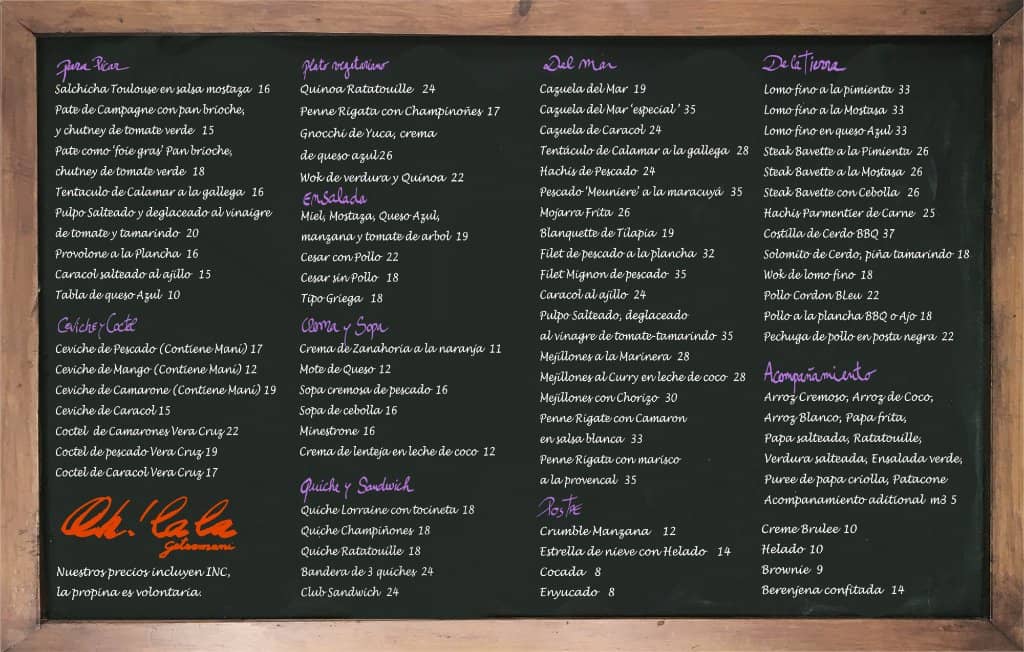 para Picar
Salchicha Toulouse en salsa mostaza 16
Pate de Campagne con pan brioche,
y chutney de tomate verde 15
Pate como 'foie gras' Pan brioche,
chutney de tomate verde 18
Tentaculo de Calamar a la gallega 16
Pulpo Salteado y deglaceado al vinaigre
de tomate y tamarindo 20
Provolone a la Plancha 16
Caracol salteado al ajillo 15
Tabla de queso Azul 10
Ceviche y Coctel
Ceviche de Pescado (Contiene Mani) 17
Ceviche de Mango (Contiene Mani) 12
Ceviche de Camarone (Contiene Mani) 19
Ceviche de Caracol 15
Coctel de Camarones Vera Cruz 22
Coctel de pescado Vera Cruz 19
Coctel de Caracol Vera Cruz 17
Oh! la la
Getsemani
Nuestros precios incluyen INC,
la propina es voluntaria.
plato vegetariano
Quinoa Ratatouille 24
Penne Rigata con Champinoñes 17
Gnocchi de Yuca, crema
de queso azul 26
Wok de verdura y Quinoa 22
Ensalada
Miel, Mostaza, Queso Azul,
manzana y tomate de arbol 19
Cesar con Pollo 22
Cesar sin Pollo 18
Tipo Griega 18
Crema y Sopa
Crema de Zanahoria a la naranja 11
Mote de Queso 12
Sopa cremosa de pescado 16
Sopa de cebolla 16
Minestrone 16
Crema de lenteja en leche de coco 12
Quiche y Sandwich
Quiche Lorraine con tocineta 18
Quiche Champiñones 18
Quiche Ratatouille 18
Bandera de 3 quiches 24
Club Sandwich 24
Del mar
Cazuela del Mar 19
Cazuela del Mar 'especial' 35
Cazuela de Caracol 24
Tentáculo de Calamar a la gallega 28
Hachis de Pescado 24
Pescado 'Meuniere' a la maracuyá 35
Mojarra Frita 26
Blanquette de Tilapia 19
Filet de pescado a la plancha 32
Filet Mignon de pescado 35
Caracol al ajillo 24
Pulpo Salteado, deglaceado
al vinagre de tomate-tamarindo 35
Mejillones a la Marinera 28
Mejillones al Curry en leche de coco 28
Mejillones con Chorizo 30
Penne Rigate con Camaron
en salsa blanca 33
Penne Rigata con marisco
a la provencal 35
Postre
Crumble Manzana 12
Estrella de nieve con Helado 14
Cocada 8
Enyucado 8
De la Tierra
Lomo fino a la pimienta 33
Lomo fino a la Mostasa 33
Lomo fino en queso Azul 33
Steak Bavette a la Pimienta 26
Steak Bavette a la Mostasa 26
Steak Bavette con Cebolla 26
Hachis Parmentier de Carne 25
Costilla de Cerdo BBQ 37
Solomito de Cerdo, piña tamarindo 18
Wok de lomo fino 18
Pollo Cordon BLeu 22
Pollo a la plancha BBQ o Ajo 18
Pechuga de pollo en posta negra 22
Acompañamiento
Arroz Cremoso, Arroz de Coco,
Arroz Blanco, Papa frita,
Papa salteada, Ratatouille,
Verdura salteada, Ensalada verde,
Puree de papa criolla, Patacone
Acompanamiento aditional m3 5
Creme Brulee 10
Helado 10
Brownie 9
Berenjena confitada 14